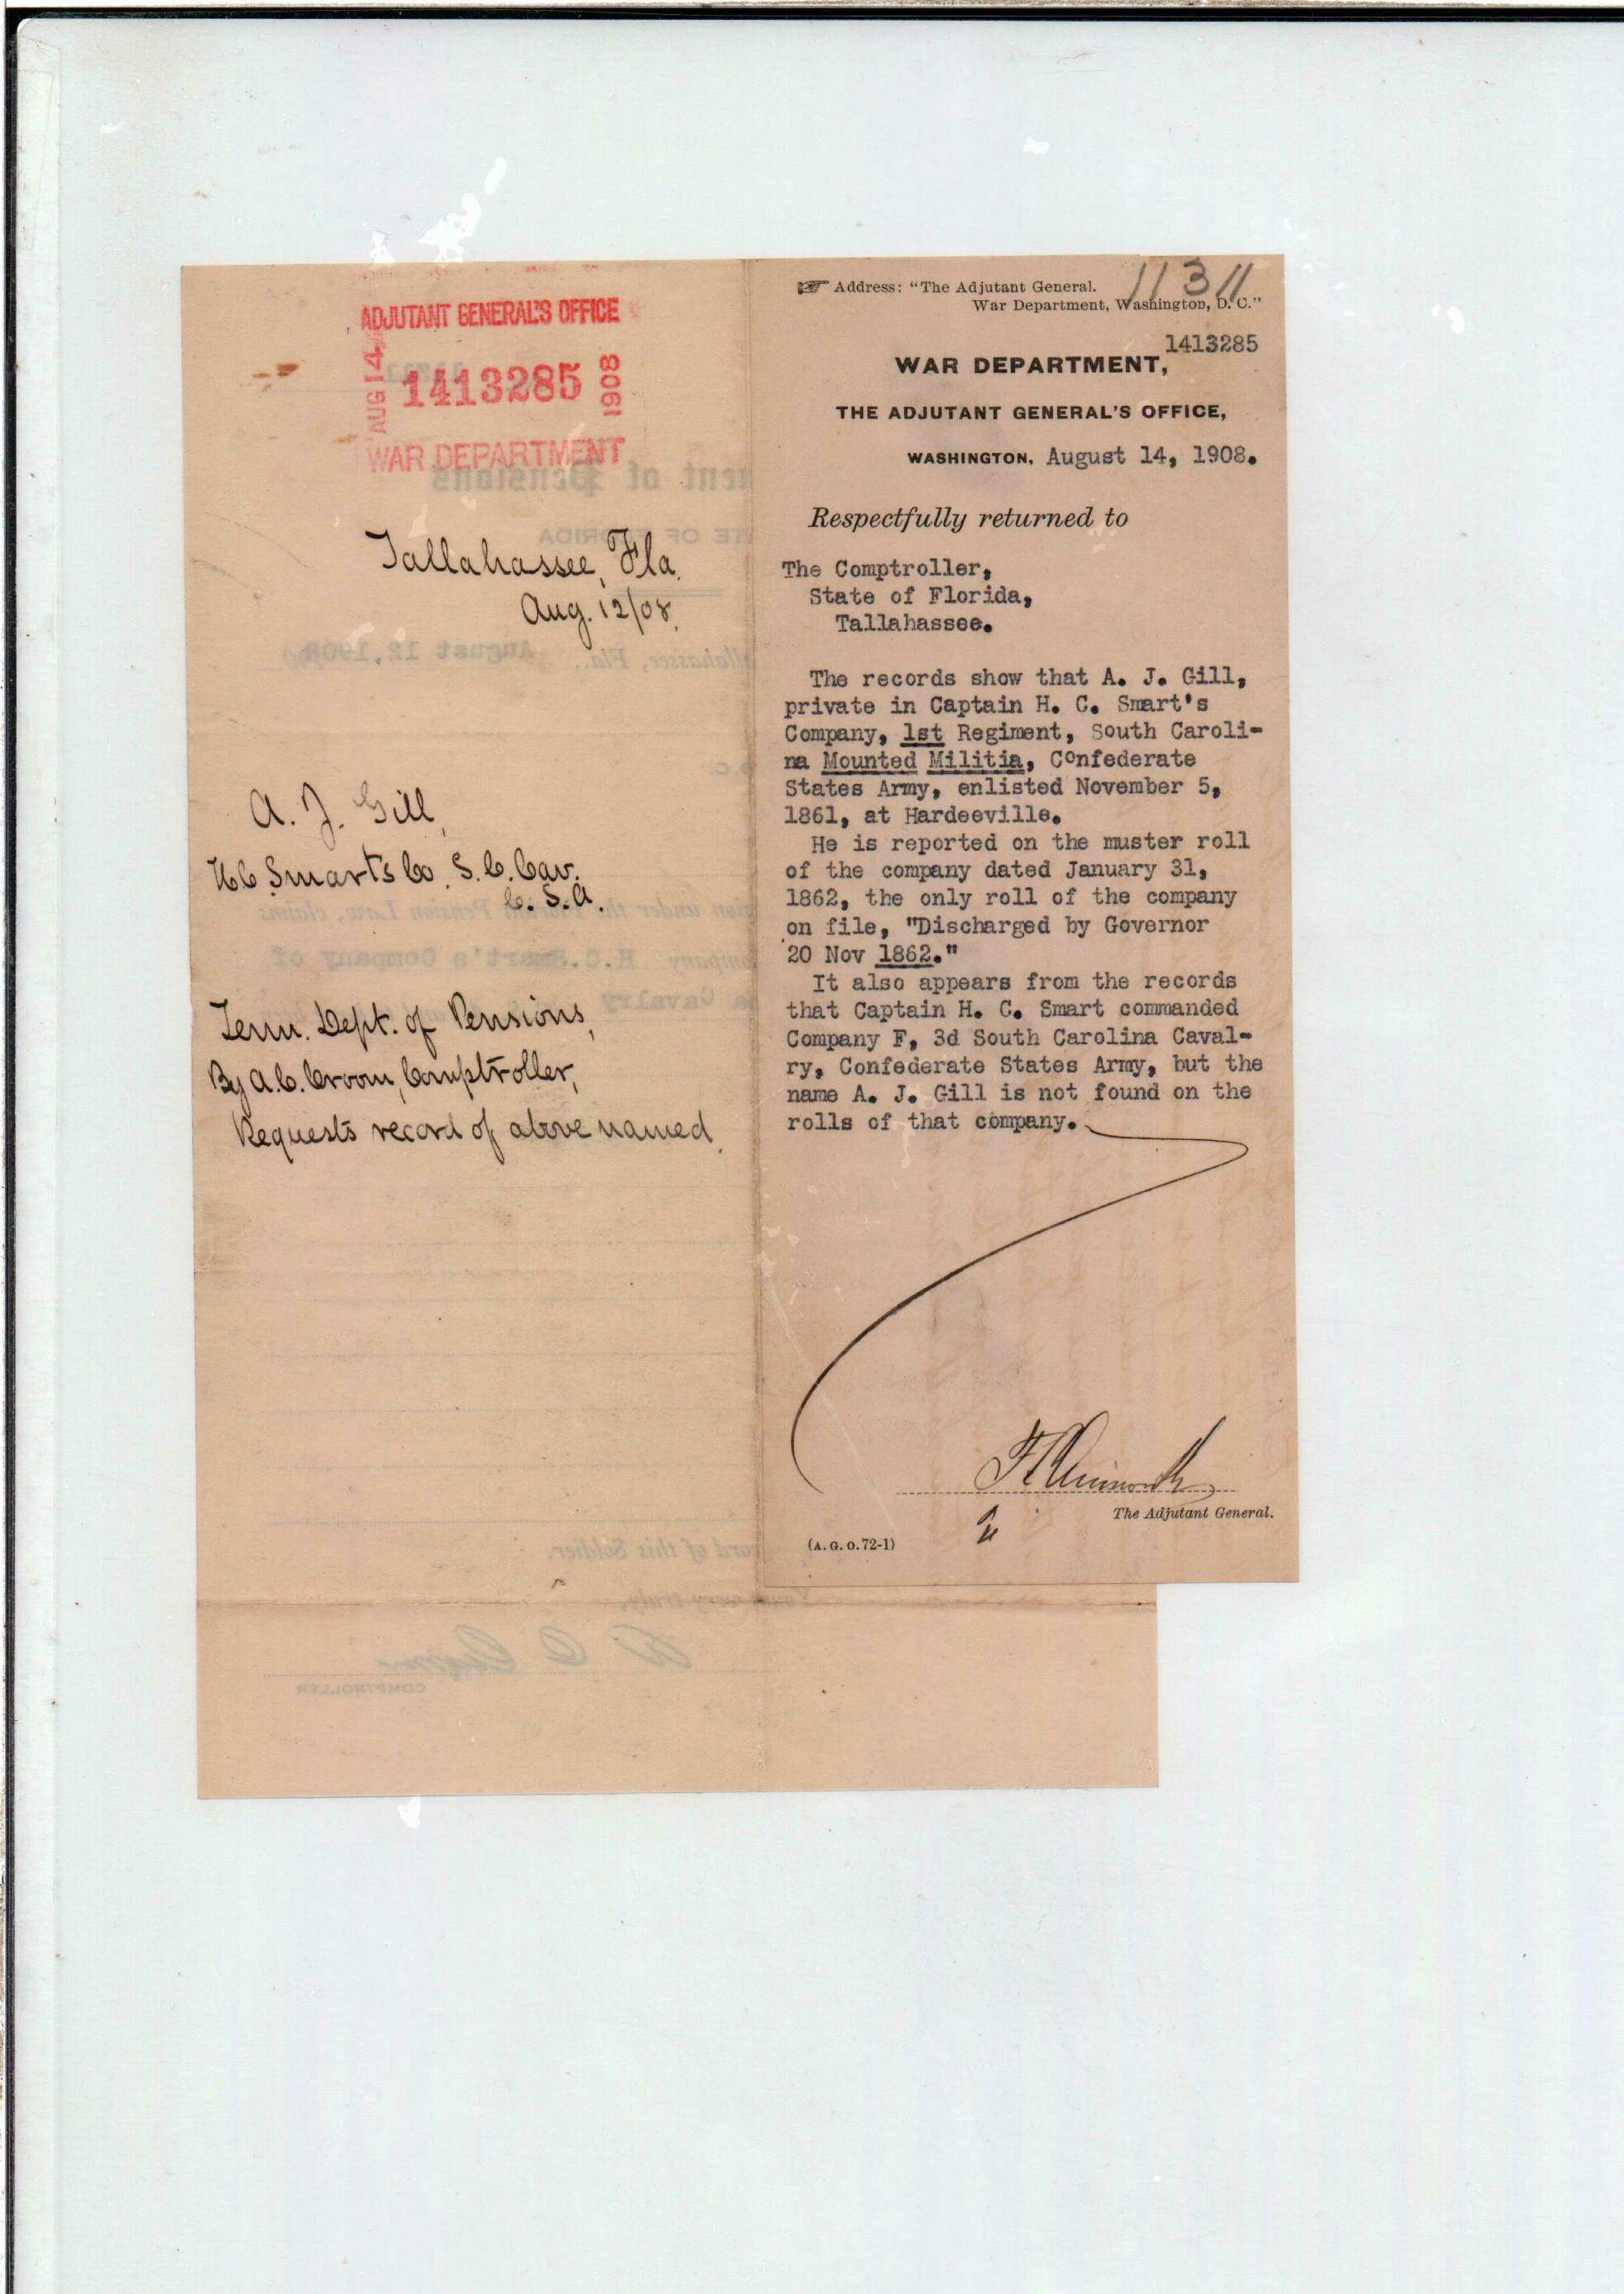 ADJUTANT GENERAL'S OFFICE
AUG 14 1413285 1908
WAR DEPARTMENT
Tallahassee, Fla.
Aug. 12/08.
A. J. Gill,
H C Smarts Co. S. C. Cav.
C. S. A.
Dept. of Pensions,
By A. C. Croom, Comptroller,
Requests record of above named.
1131
Address: "The Adjutant General.
War Department, Washington, D. C."
1413285
WAR DEPARTMENT,
THE ADJUTANT GENERAL'S OFFICE,
WASHINGTON, August 14, 1908.
Respectfully returned to
The Comptroller,
State of Florida,
Tallahassee.
The records show that A. J. Gill,
private in Captain H. C. Smart's
Company, 1st Regiment, South Caroli-
na Mounted Militia, Confederate
States Army, enlisted November 5,
1861, at Hardeeville.
He is reported on the muster roll
of the company dated January 31,
1862, the only roll of the company
on file, "Discharged by Governor
20 Nov 1862."
It also appears from the records
that Captain H. C. Smart commanded
Company F, 3d South Carolina Caval-
ry, Confederate States Army, but the
name A. J. Gill is not found on the
rolls of that company.
The Adjutant General.
(A. G. O. 72-1)